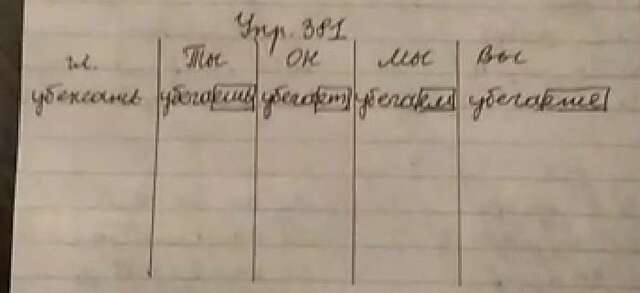 Упр. 381
гл. Ты он мы вы
убежать убегаешь убегает убегаем убегаете